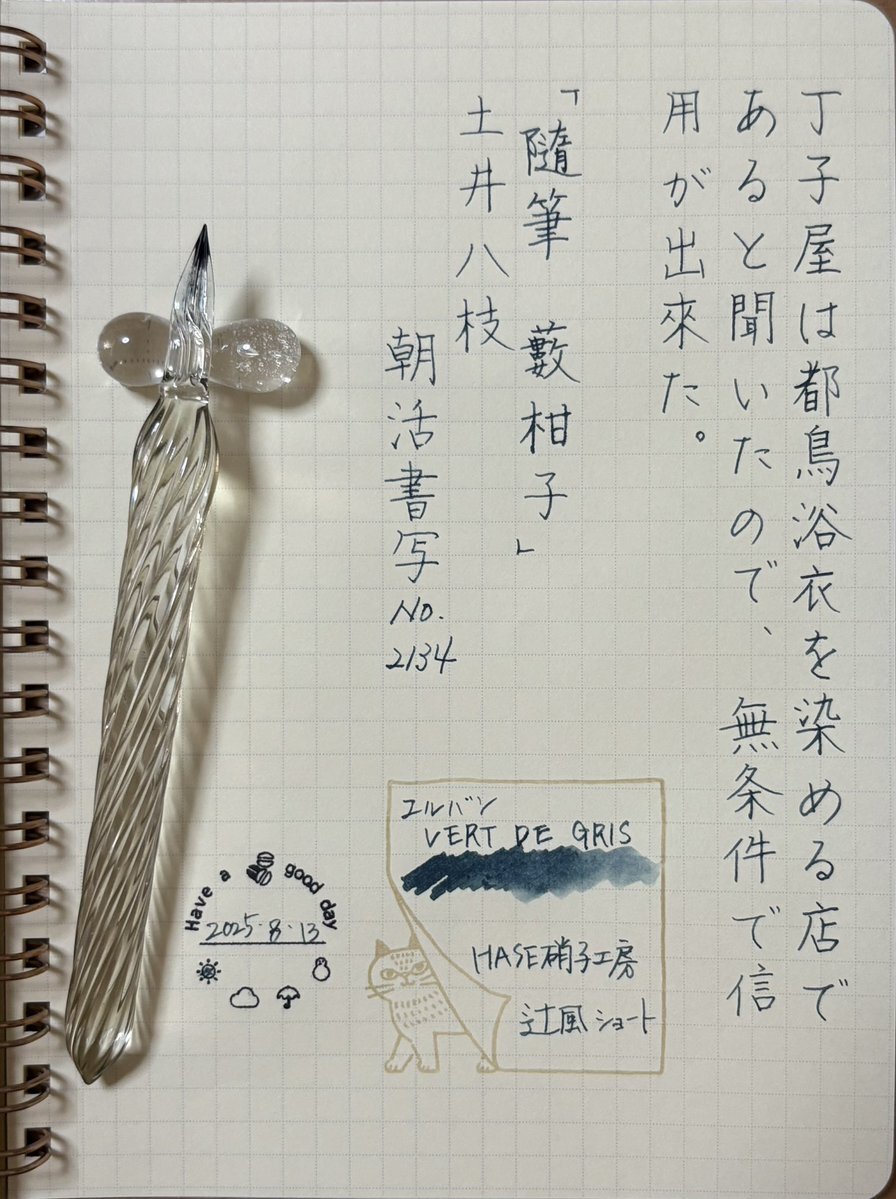 丁子屋は都鳥浴衣を染める店で
あると聞いたので、無条件で信
用が出來た。
「隨筆　藪柑子」
土井八枝
朝活書写No.
2134
エルバン
VERT DE GRIS
HASE硝子工房
辻風ショート
Have a good day
2025.8.13